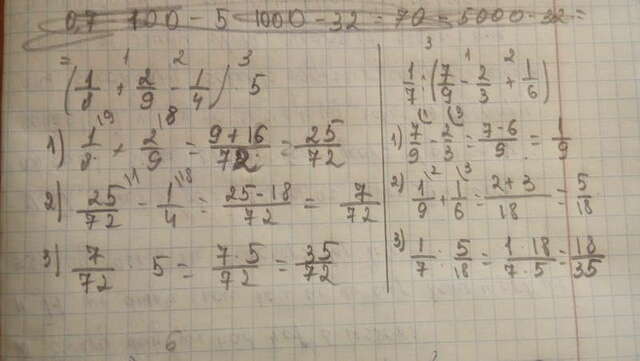 0,7 · 100 - 5 · 1000 - 32 = 70 - 5000 - 32 =
= (1/8 + 2/9 - 1/4) · 5
1) 1/8 + 2/9 = 9+16/72 = 25/72
2) 25/72 - 1/4 = 25-18/72 = 7/72
3) 7/72 · 5 = 7·5/72 = 35/72
1/7 : (7/9 - 2/3 + 1/6)
1) 7/9 - 2/3 = 7-6/9 = 1/9
2) 1/9 + 1/6 = 2+3/18 = 5/18
3) 1/7 : 5/18 = 1·18/7·5 = 18/35
6